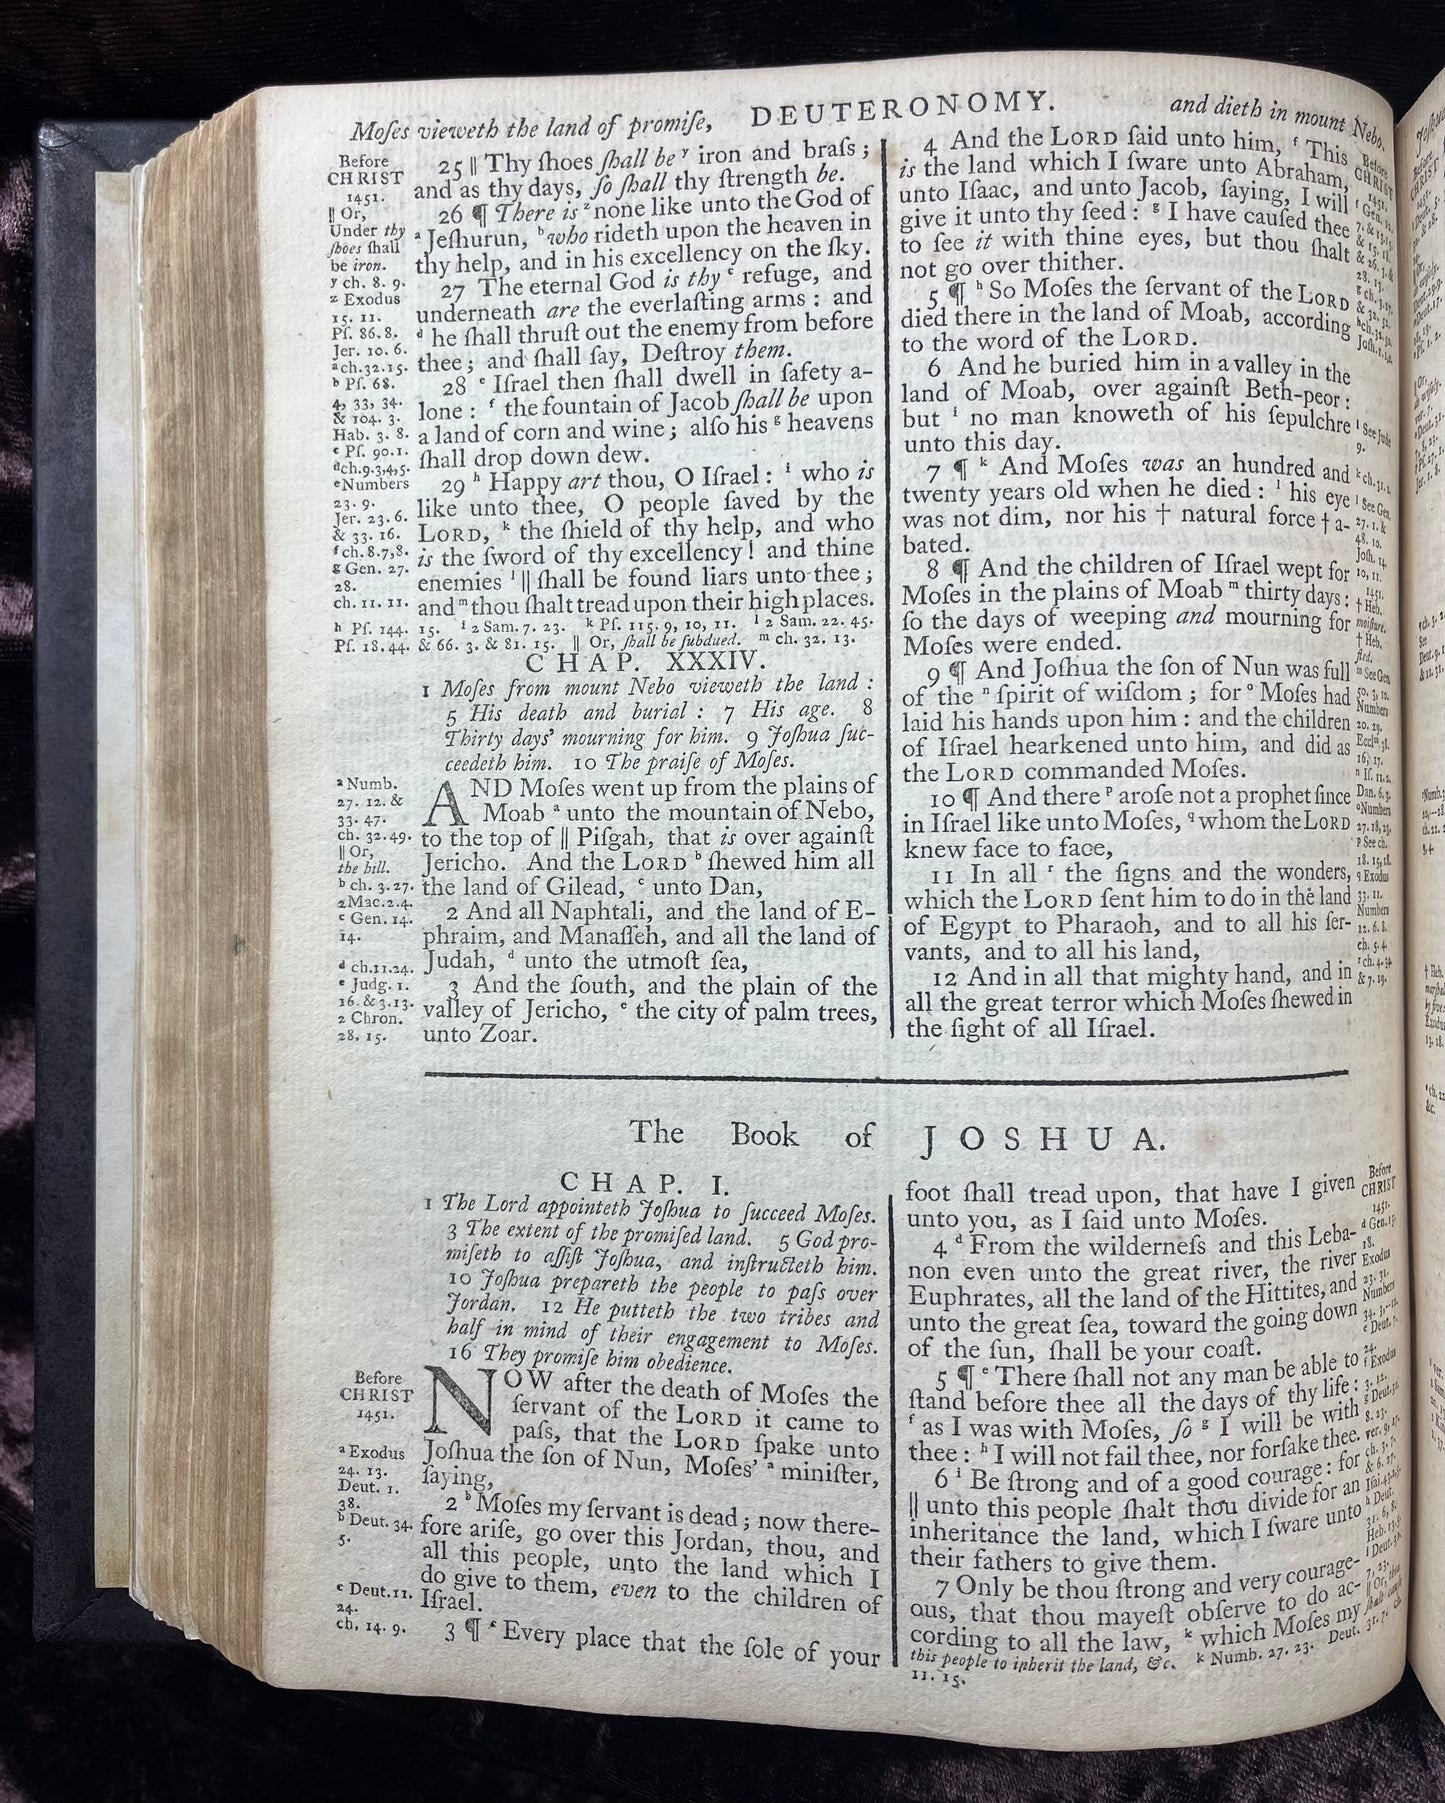 Moſes vieweth the land of promiſe, DEUTERONOMY. and dieth in mount Nebo.
Before
CHRIST
1451.
|| Or,
Under thy
ſhoes ſhall
be iron.
y ch. 8. 9.
z Exodus
15. 11.
Pſ. 86. 8.
Jer. 10. 6.
a ch. 32. 15.
b Pſ. 68.
4, 33, 34.
& 104. 3.
Hab. 3. 8.
c Pſ. 90. 1.
d ch. 9. 3, 4, 5.
e Numbers
23. 9.
Jer. 23. 6.
& 33. 16.
f ch. 8. 7, 8.
g Gen. 27.
28.
ch. 11. 11.
25 || Thy ſhoes ſhall be y iron and braſs;
and as thy days, ſo ſhall thy ſtrength be.
26 ¶ There is z none like unto the God of
a Jeſhurun, b who rideth upon the heaven in
thy help, and in his excellency on the ſky.
27 The eternal God is thy c refuge, and
underneath are the everlaſting arms: and
d he ſhall thruſt out the enemy from before
thee; and ſhall ſay, Deſtroy them.
28 e Iſrael then ſhall dwell in ſafety a-
lone: f the fountain of Jacob ſhall be upon
a land of corn and wine; alſo his g heavens
ſhall drop down dew.
29 h Happy art thou, O Iſrael: i who is
like unto thee, O people ſaved by the
LORD, k the ſhield of thy help, and who
is the ſword of thy excellency! and thine
enemies l || ſhall be found liars unto thee;
and m thou ſhalt tread upon their high places.
h Pſ. 144. 15. i 2 Sam. 7. 23. k Pſ. 115. 9, 10, 11. l 2 Sam. 22. 45.
Pſ. 18. 44. & 66. 3. & 81. 15. || Or, ſhall be ſubdued. m ch. 32. 13.
CHAP. XXXIV.
1 Moſes from mount Nebo vieweth the land:
5 His death and burial: 7 His age. 8
Thirty days' mourning for him. 9 Joſhua ſuc-
ceedeth him. 10 The praiſe of Moſes.
a Numb.
27. 12. &
33. 47.
ch. 32. 49.
|| Or,
the hill.
b ch. 3. 27.
2 Mac. 2. 4.
c Gen. 14.
14.
d ch. 11. 24.
e Judg. 1.
16. & 3. 13.
2 Chron.
28. 15.
AND Moſes went up from the plains of
Moab a unto the mountain of Nebo,
to the top of || Piſgah, that is over againſt
Jericho. And the LORD b ſhewed him all
the land of Gilead, c unto Dan,
2 And all Naphtali, and the land of E-
phraim, and Manaſſeh, and all the land of
Judah, d unto the utmoſt ſea,
3 And the ſouth, and the plain of the
valley of Jericho, e the city of palm trees,
unto Zoar.
4 And the LORD ſaid unto him, f This
is the land which I ſware unto Abraham,
unto Iſaac, and unto Jacob, ſaying, I will
give it unto thy ſeed: g I have cauſed thee
to ſee it with thine eyes, but thou ſhalt
not go over thither.
5 ¶ h So Moſes the ſervant of the LORD
died there in the land of Moab, according
to the word of the LORD.
6 And he buried him in a valley in the
land of Moab, over againſt Beth-peor:
but i no man knoweth of his ſepulchre
unto this day.
7 ¶ k And Moſes was an hundred and
twenty years old when he died: l his eye
was not dim, nor his † natural force † a-
bated.
8 ¶ And the children of Iſrael wept for
Moſes in the plains of Moab m thirty days:
ſo the days of weeping and mourning for
Moſes were ended.
9 ¶ And Joſhua the ſon of Nun was full
of the n ſpirit of wiſdom; for o Moſes had
laid his hands upon him: and the children
of Iſrael hearkened unto him, and did as
the LORD commanded Moſes.
10 ¶ And there p aroſe not a prophet ſince
in Iſrael like unto Moſes, q whom the LORD
knew face to face,
11 In all r the ſigns and the wonders,
which the LORD ſent him to do in the land
of Egypt to Pharaoh, and to all his ſer-
vants, and to all his land,
12 And in all that mighty hand, and in
all the great terror which Moſes ſhewed in
the ſight of all Iſrael.
Before
CHRIST
1451.
i See Jude
9.
k ch. 31. 2.
l See Gen.
27. 1. &
48. 10.
Joſh. 14.
10, 11.
1451.
† Heb.
moiſture.
† Heb.
fled.
m See Gen.
50. 3, 10.
Numbers
20. 29.
Eccluſ. 38.
16, 17.
n Iſ. 11. 2.
Dan. 6. 3.
o Numbers
27. 18, 23.
p See ch.
18. 15, 18.
q Exodus
33. 11.
Numbers
12. 6. 8.
ch. 5. 4.
r ch. 4. 34.
& 7. 19.
The Book of JOSHUA.
CHAP. I.
1 The Lord appointeth Joſhua to ſucceed Moſes.
3 The extent of the promiſed land. 5 God pro-
miſeth to aſſiſt Joſhua, and inſtructeth him.
10 Joſhua prepareth the people to paſs over
Jordan. 12 He putteth the two tribes and
half in mind of their engagement to Moſes.
16 They promiſe him obedience.
Before
CHRIST
1451.
a Exodus
24. 13.
Deut. 1.
38.
b Deut. 34.
5.
c Deut. 11.
24.
ch. 14. 9.
NOW after the death of Moſes the
ſervant of the LORD it came to
paſs, that the LORD ſpake unto
Joſhua the ſon of Nun, Moſes' a miniſter,
ſaying,
2 b Moſes my ſervant is dead; now there-
fore ariſe, go over this Jordan, thou, and
all this people, unto the land which I
do give to them, even to the children of
Iſrael.
3 ¶ c Every place that the ſole of your
foot ſhall tread upon, that have I given
unto you, as I ſaid unto Moſes.
4 d From the wilderneſs and this Leba-
non even unto the great river, the river
Euphrates, all the land of the Hittites, and
unto the great ſea, toward the going down
of the ſun, ſhall be your coaſt.
5 ¶ e There ſhall not any man be able to
ſtand before thee all the days of thy life:
f as I was with Moſes, ſo g I will be with
thee: h I will not fail thee, nor forſake thee.
6 i Be ſtrong and of a good courage: for
|| unto this people ſhalt thou divide for an
inheritance the land, which I ſware unto
their fathers to give them.
7 Only be thou ſtrong and very courage-
ous, that thou mayeſt obſerve to do ac-
cording to all the law, k which Moſes my
this people to inherit the land, &c. k Numb. 27. 23. Deut. 31. 7.
11. 15.
Before
CHRIST
1451.
d Gen. 15.
18.
Exodus
23. 31.
Numbers